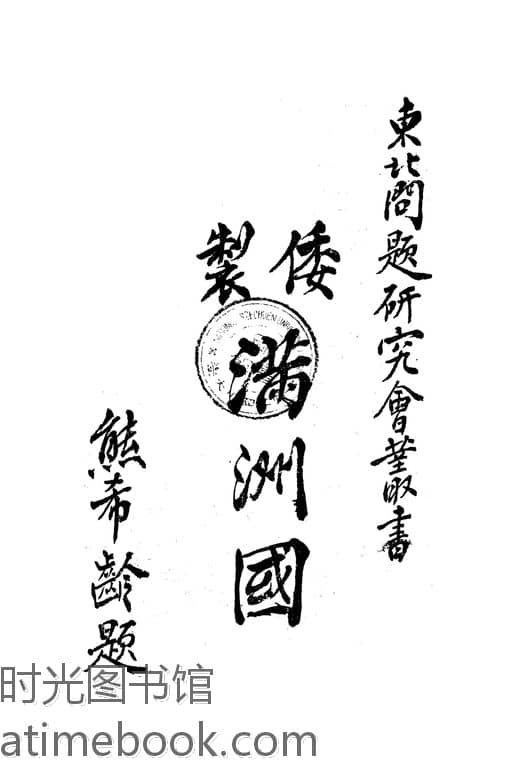 東北問題研究會叢書
倭製
滿洲國
熊希齡題
时光图书馆
atimebook.com